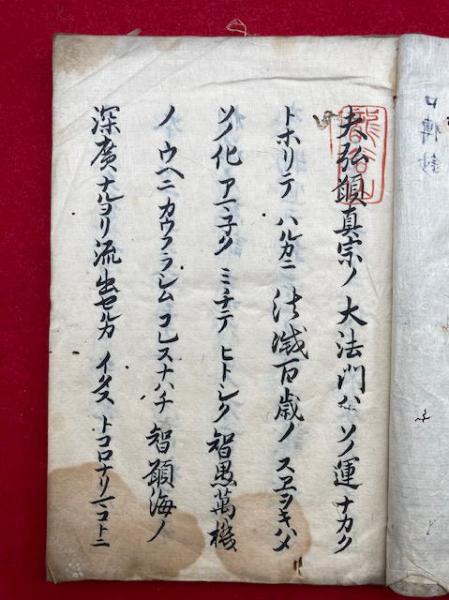 口傳鈔
夫弘願真宗ノ大法門ハソノ運ナカク
トホリテハルカニ法滅百歳ノスヱヲキハメ
ソノ化アマネクミチテヒトシク智愚萬機
ノウヘニカウフラシムコレスナハチ智願海ノ
深廣ナルヨリ流出セルカイタストコロナリマコトニ